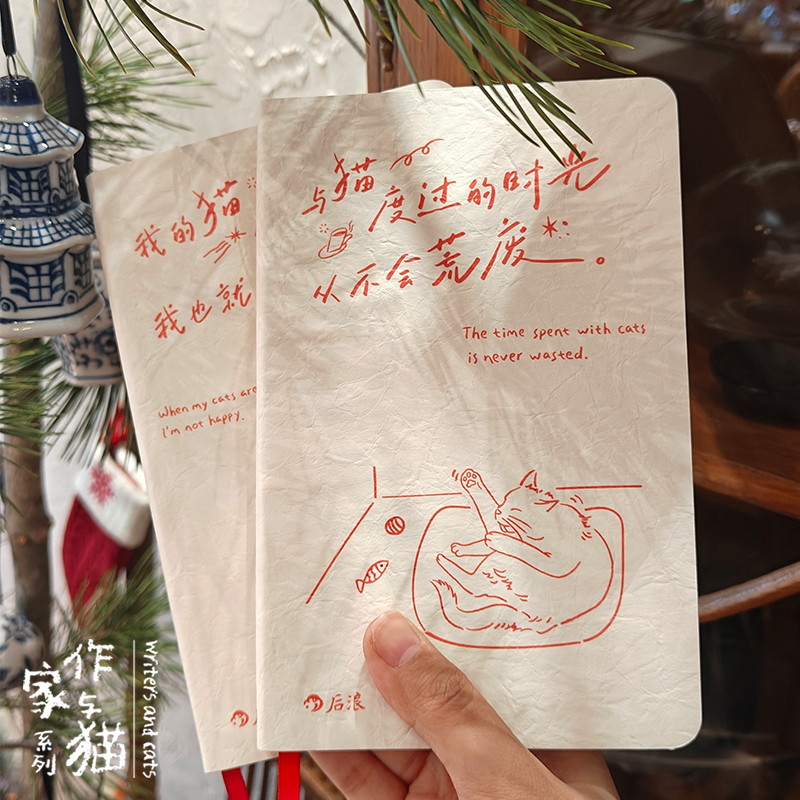 与猫
度过的时光
从不会荒废。
The time spent with cats
is never wasted.
后浪
我的猫
我也就
When my cats are
I'm not happy.
作家与猫
系列
Writers and cats